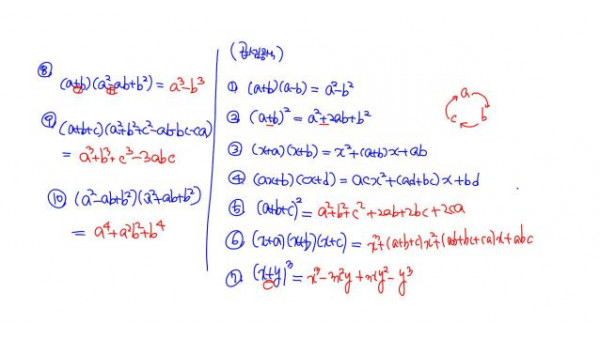 ⑧
(a±b)(a²∓ab+b²) = a³-b³
⑨
(a+b+c)(a²+b²+c²-ab-bc-ca)
= a³+b³+c³-3abc
⑩ (a²-ab+b²)(a²+ab+b²)
= a⁴+a²b²+b⁴
(곱셈공식)
① (a+b)(a-b) = a²-b²
② (a±b)² = a²±2ab+b²
③ (x+a)(x+b) = x²+(a+b)x+ab
④ (ax+b)(cx+d) = acx²+(ad+bc)x+bd
⑤ (a+b+c)² = a²+b²+c²+2ab+2bc+2ca
⑥ (x+a)(x+b)(x+c) = x³+(a+b+c)x²+(ab+bc+ca)x+abc
⑦ (x±y)³ = x³-3x²y+3xy²-y³
a
c b